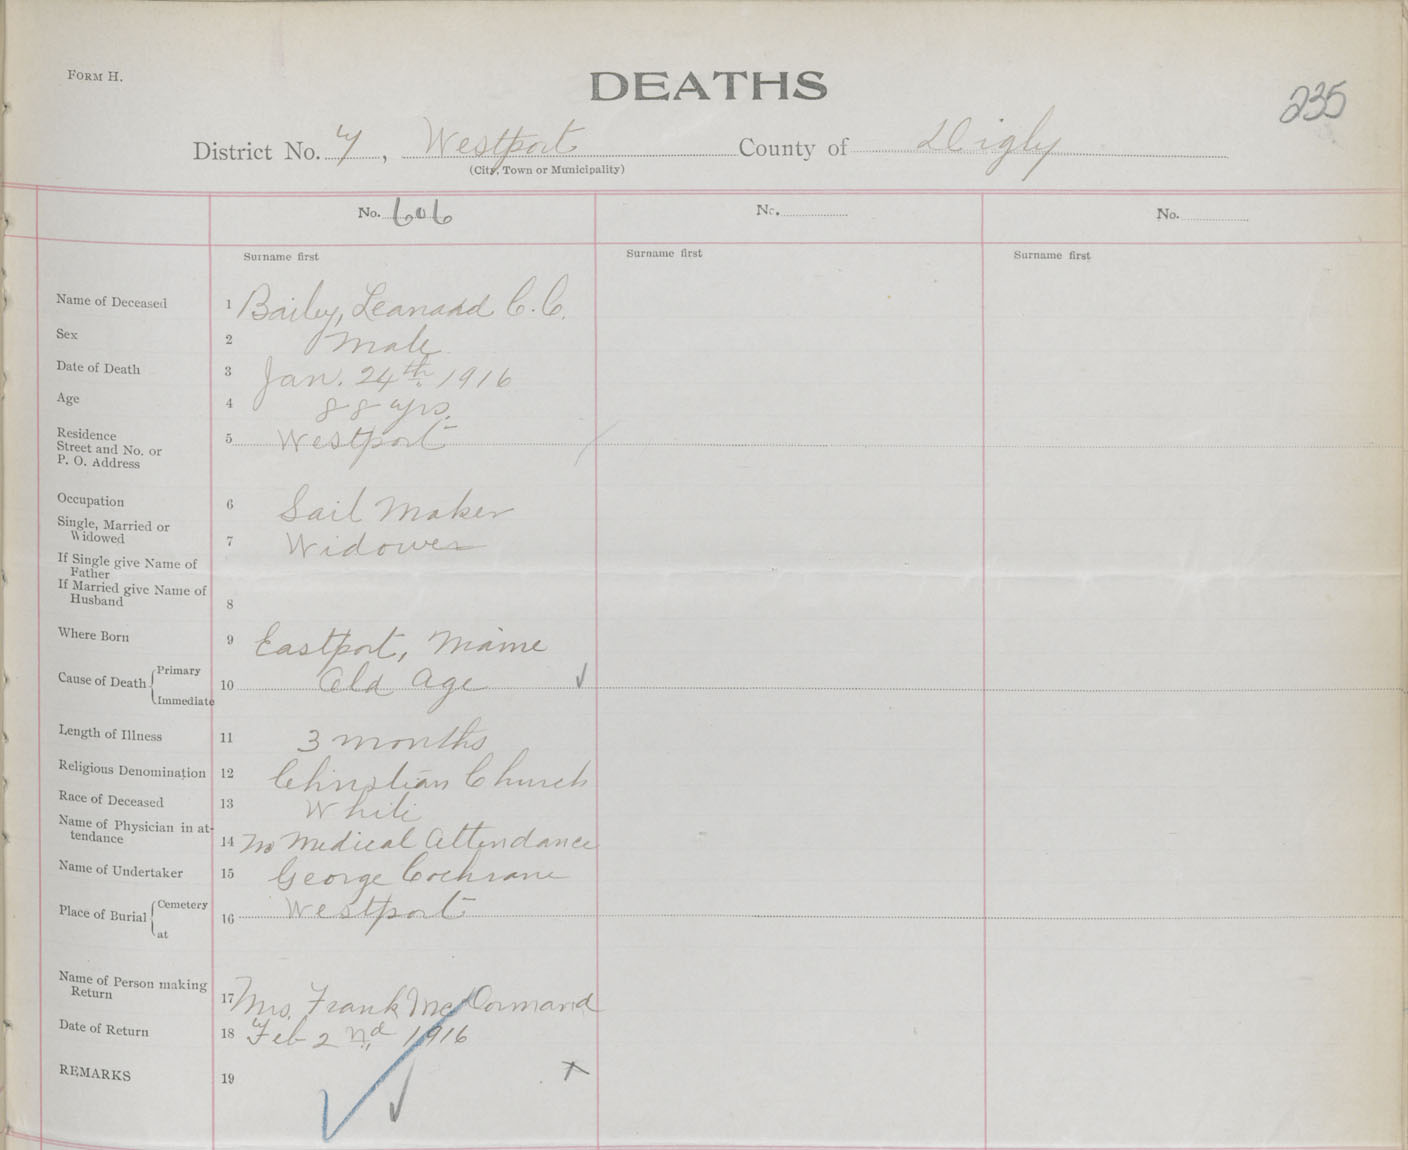 FORM H.
DEATHS
235
District No. 4, Westport County of Digby
(City, Town or Municipality)
No. 606 No. No.
Surname first Surname first Surname first
Name of Deceased 1 Bailey, Leanard C. C.
Sex 2 Male
Date of Death 3 Jan. 24th. 1916
Age 4 88 yrs.
Residence
Street and No. or
P. O. Address
5 Westport
Occupation 6 Sail Maker
Single, Married or
Widowed
7 Widower
If Single give Name of
Father
If Married give Name of
Husband
8
Where Born 9 Eastport, Maine
Cause of Death Primary
Immediate
10 Old Age
Length of Illness 11 3 months
Religious Denomination 12 Christian Church
Race of Deceased 13 White
Name of Physician in at-
tendance
14 No Medical Attendance
Name of Undertaker 15 George Cochrane
Place of Burial Cemetery
at
16 Westport
Name of Person making
Return
17 Mrs. Frank McDormand
Date of Return 18 Feb 2nd, 1916
REMARKS 19